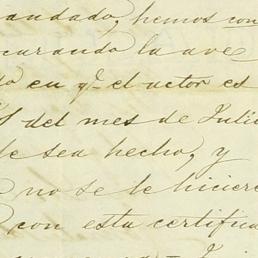 andado, hemos con
curando la ave
do en q.e el actor es
del mes de Julio
le sea hecho, y
no se le hiciere
con esta certifica